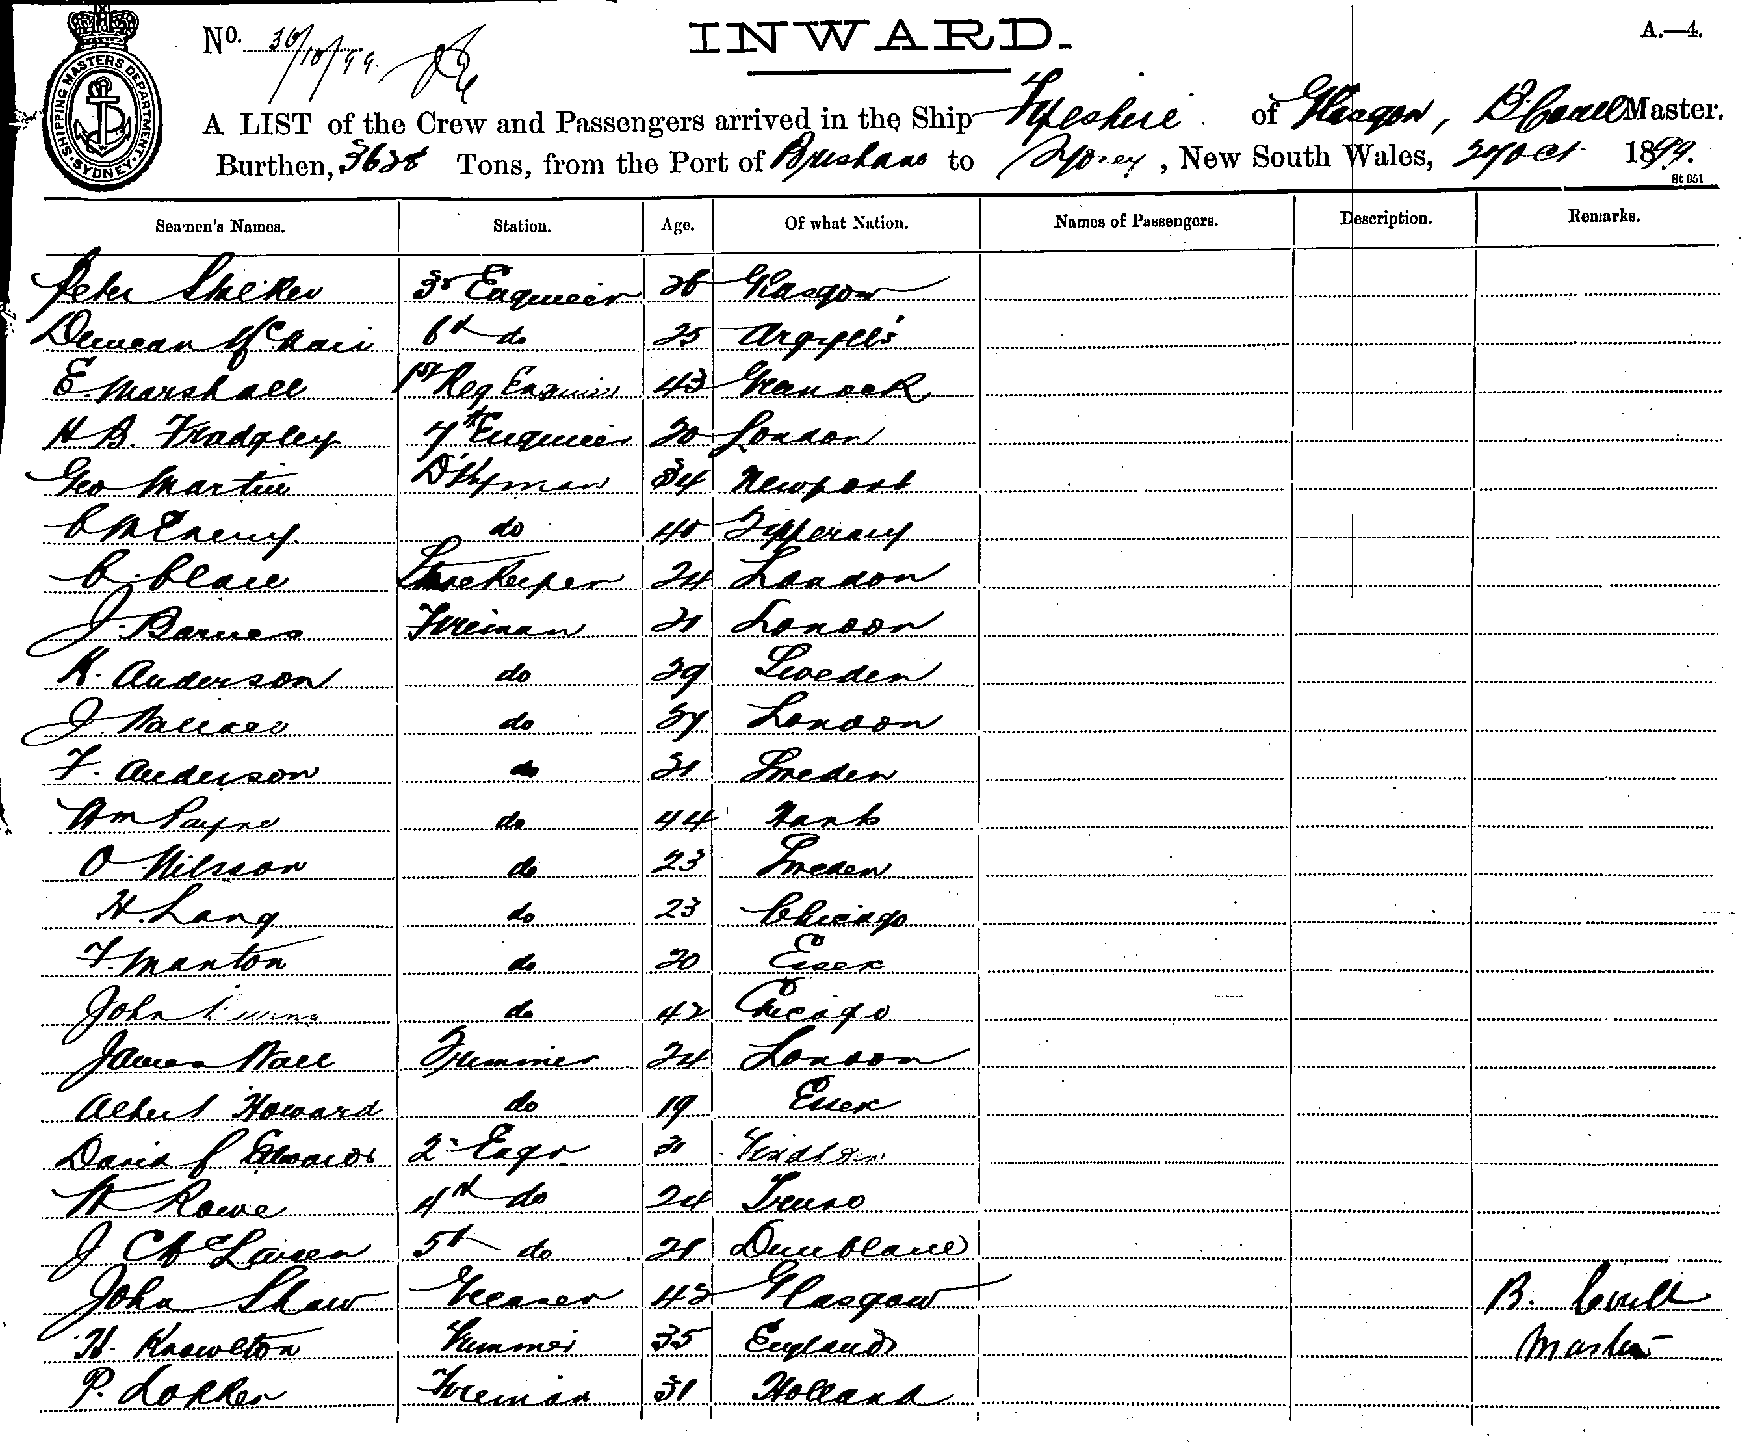 SHIPPING MASTERS DEPARTMENT. SYDNEY.
No. 30/10/99
INWARD.
A.—4.
A LIST of the Crew and Passengers arrived in the Ship Fifeshire of Glasgow, Master.
Burthen, 3628 Tons, from the Port of Brisbane to Sydney, New South Wales, 27 Oct 1899.
Seamen's Names. Station. Age. Of what Nation. Names of Passengers. Description. Remarks.
Peter 3r Engineer 26 Glasgow
Duncan McNair 6th do 25 Argyll
E. Marshall 1st Reg Engineer 43 Greenock
H B. Fradgley 7th Engineer 20 London
Geo Martin D'kyman 34 Newport
do 40 Tipperary
Storekeeper 24 London
J. Barnes Fireman 31 London
K. Anderson do 29 Sweden
J. do 37 London
F. Anderson do 31 Sweden
Wm Payne do 44 Hants
O Nilsson do 23 Sweden
H. Lang do 23 Chicago
F. Manton do 20 Essex
John do 42 Chicago
James Wall Trimmer 24 London
Albert Howard do 19 Essex
David J Edwards 2nd Engr 31
W Rowe 4th do 24 Truro
J C McLaren 5th do 21 Dunblane
John Shaw Greaser 43 Glasgow
H. Knowlton Trimmer 35 England
P. Dokker Fireman 31 Holland
B.
Master